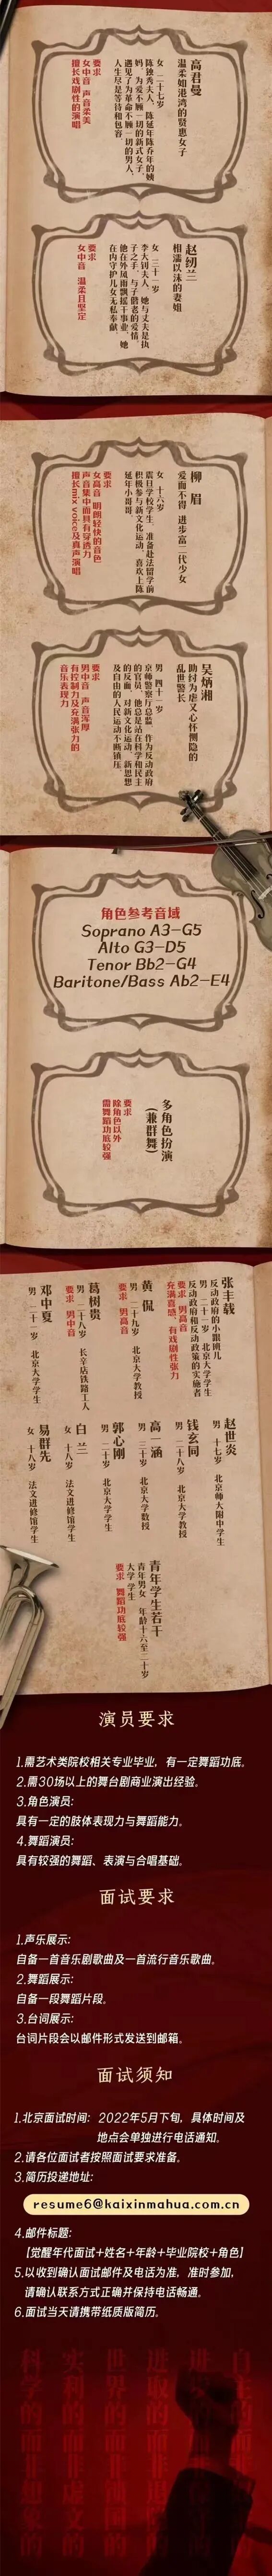 高君曼
温柔如港湾的贤惠女子
女 二十七岁
陈独秀夫人，陈延年陈乔年的姨
妈，为爱不顾一切的新式女子，
遇见了为革命不顾一切的男人，
人生尽是等待和包容
要求
女中音 声音柔美
擅长戏剧性的演唱
赵纫兰
相濡以沫的妻姐
女 三十一岁
李大钊夫人，她与丈夫是执
子之手，与子偕老的爱情，
他在外风雨飘摇干事业，她
在内守护儿女无私奉献
要求
女中音 温柔且坚定
柳 眉
爱而不得 进步富二代少女
女 十六岁
震旦学校学生，准备赴法留学前
积极参与新文化运动，喜欢上陈
延年小哥哥
要求
女高音 明朗轻快的音色
声音集中而具有穿透力
擅长mix voice及真声演唱
吴炳湘
助纣为虐又心怀恻隐的
乱世警长
男 四十一岁
京师警察厅总监，作为反动政府
的官员，他总是站在科学和民主
的反面，对新文化运动、新思想
及自由的人民运动不断镇压
要求
男中音 声音浑厚
有控制力及充满张力的
音乐表现力
角色参考音域
Soprano A3-G5
Alto G3-D5
Tenor Bb2-G4
Baritone/Bass Ab2-E4
多角色扮演
（兼群舞）
要求
除角色以外
需舞蹈功底较强
张丰载
反动政府的小跟班儿
男 二十一岁 北京大学学生
反动政府和反动政策的实施者
要求 男高音
充满喜感、有戏剧性张力
黄 侃
男 二十九岁 北京大学教授
要求 男高音
葛树贵
男 二十八岁 长辛店铁路工人
要求 男中音
邓中夏
男 二十一岁 北京大学学生
赵世炎
男 十七岁 北京师大附中学生
钱玄同
男 二十八岁 北京大学教授
高一涵
男 三十岁 北京大学教授
郭心刚
男 二十岁 北京大学学生
白 兰
女 十八岁 法文进修馆学生
易群先
女 十八岁 法文进修馆学生
青年学生若干
青年男女 年龄十六至二十岁
大学 学生
要求 舞蹈功底较强
演员要求
1.需艺术类院校相关专业毕业，有一定舞蹈功底。
2.需30场以上的舞台剧商业演出经验。
3.角色演员：
具有一定的肢体表现力与舞蹈能力。
4.舞蹈演员：
具有较强的舞蹈、表演与合唱基础。
面试要求
1.声乐展示：
自备一首音乐剧歌曲及一首流行音乐歌曲。
2.舞蹈展示：
自备一段舞蹈片段。
3.台词展示：
台词片段会以邮件形式发送到邮箱。
面试须知
1.北京面试时间：2022年5月下旬，具体时间及
地点会单独进行电话通知。
2.请各位面试者按照面试要求准备。
3.简历投递地址：
resume6@kaixinmahua.com.cn
4.邮件标题：
【觉醒年代面试+姓名+年龄+毕业院校+角色】
5.以收到确认面试邮件及电话为准，准时参加，
请确认联系方式正确并保持电话畅通。
6.面试当天请携带纸质版简历。